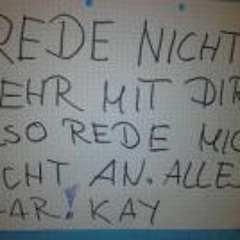 REDE NICHT
EHR MIT DIR
SO REDE MIC
CHT AN. ALLE
AR! KAY